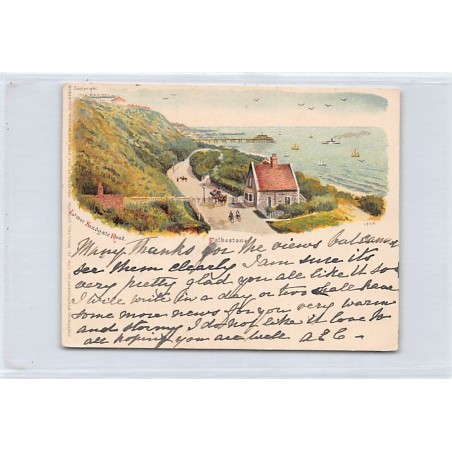 Copyright
Lower Sandgate Road.
Folkestone
Many Thanks for the views but cannot
see them clearly I am sure its
very pretty glad you all like it so
I will write in a day or two shall have
some more news for you very warm
and stormy I do not like it love to
all hoping you are well A E C